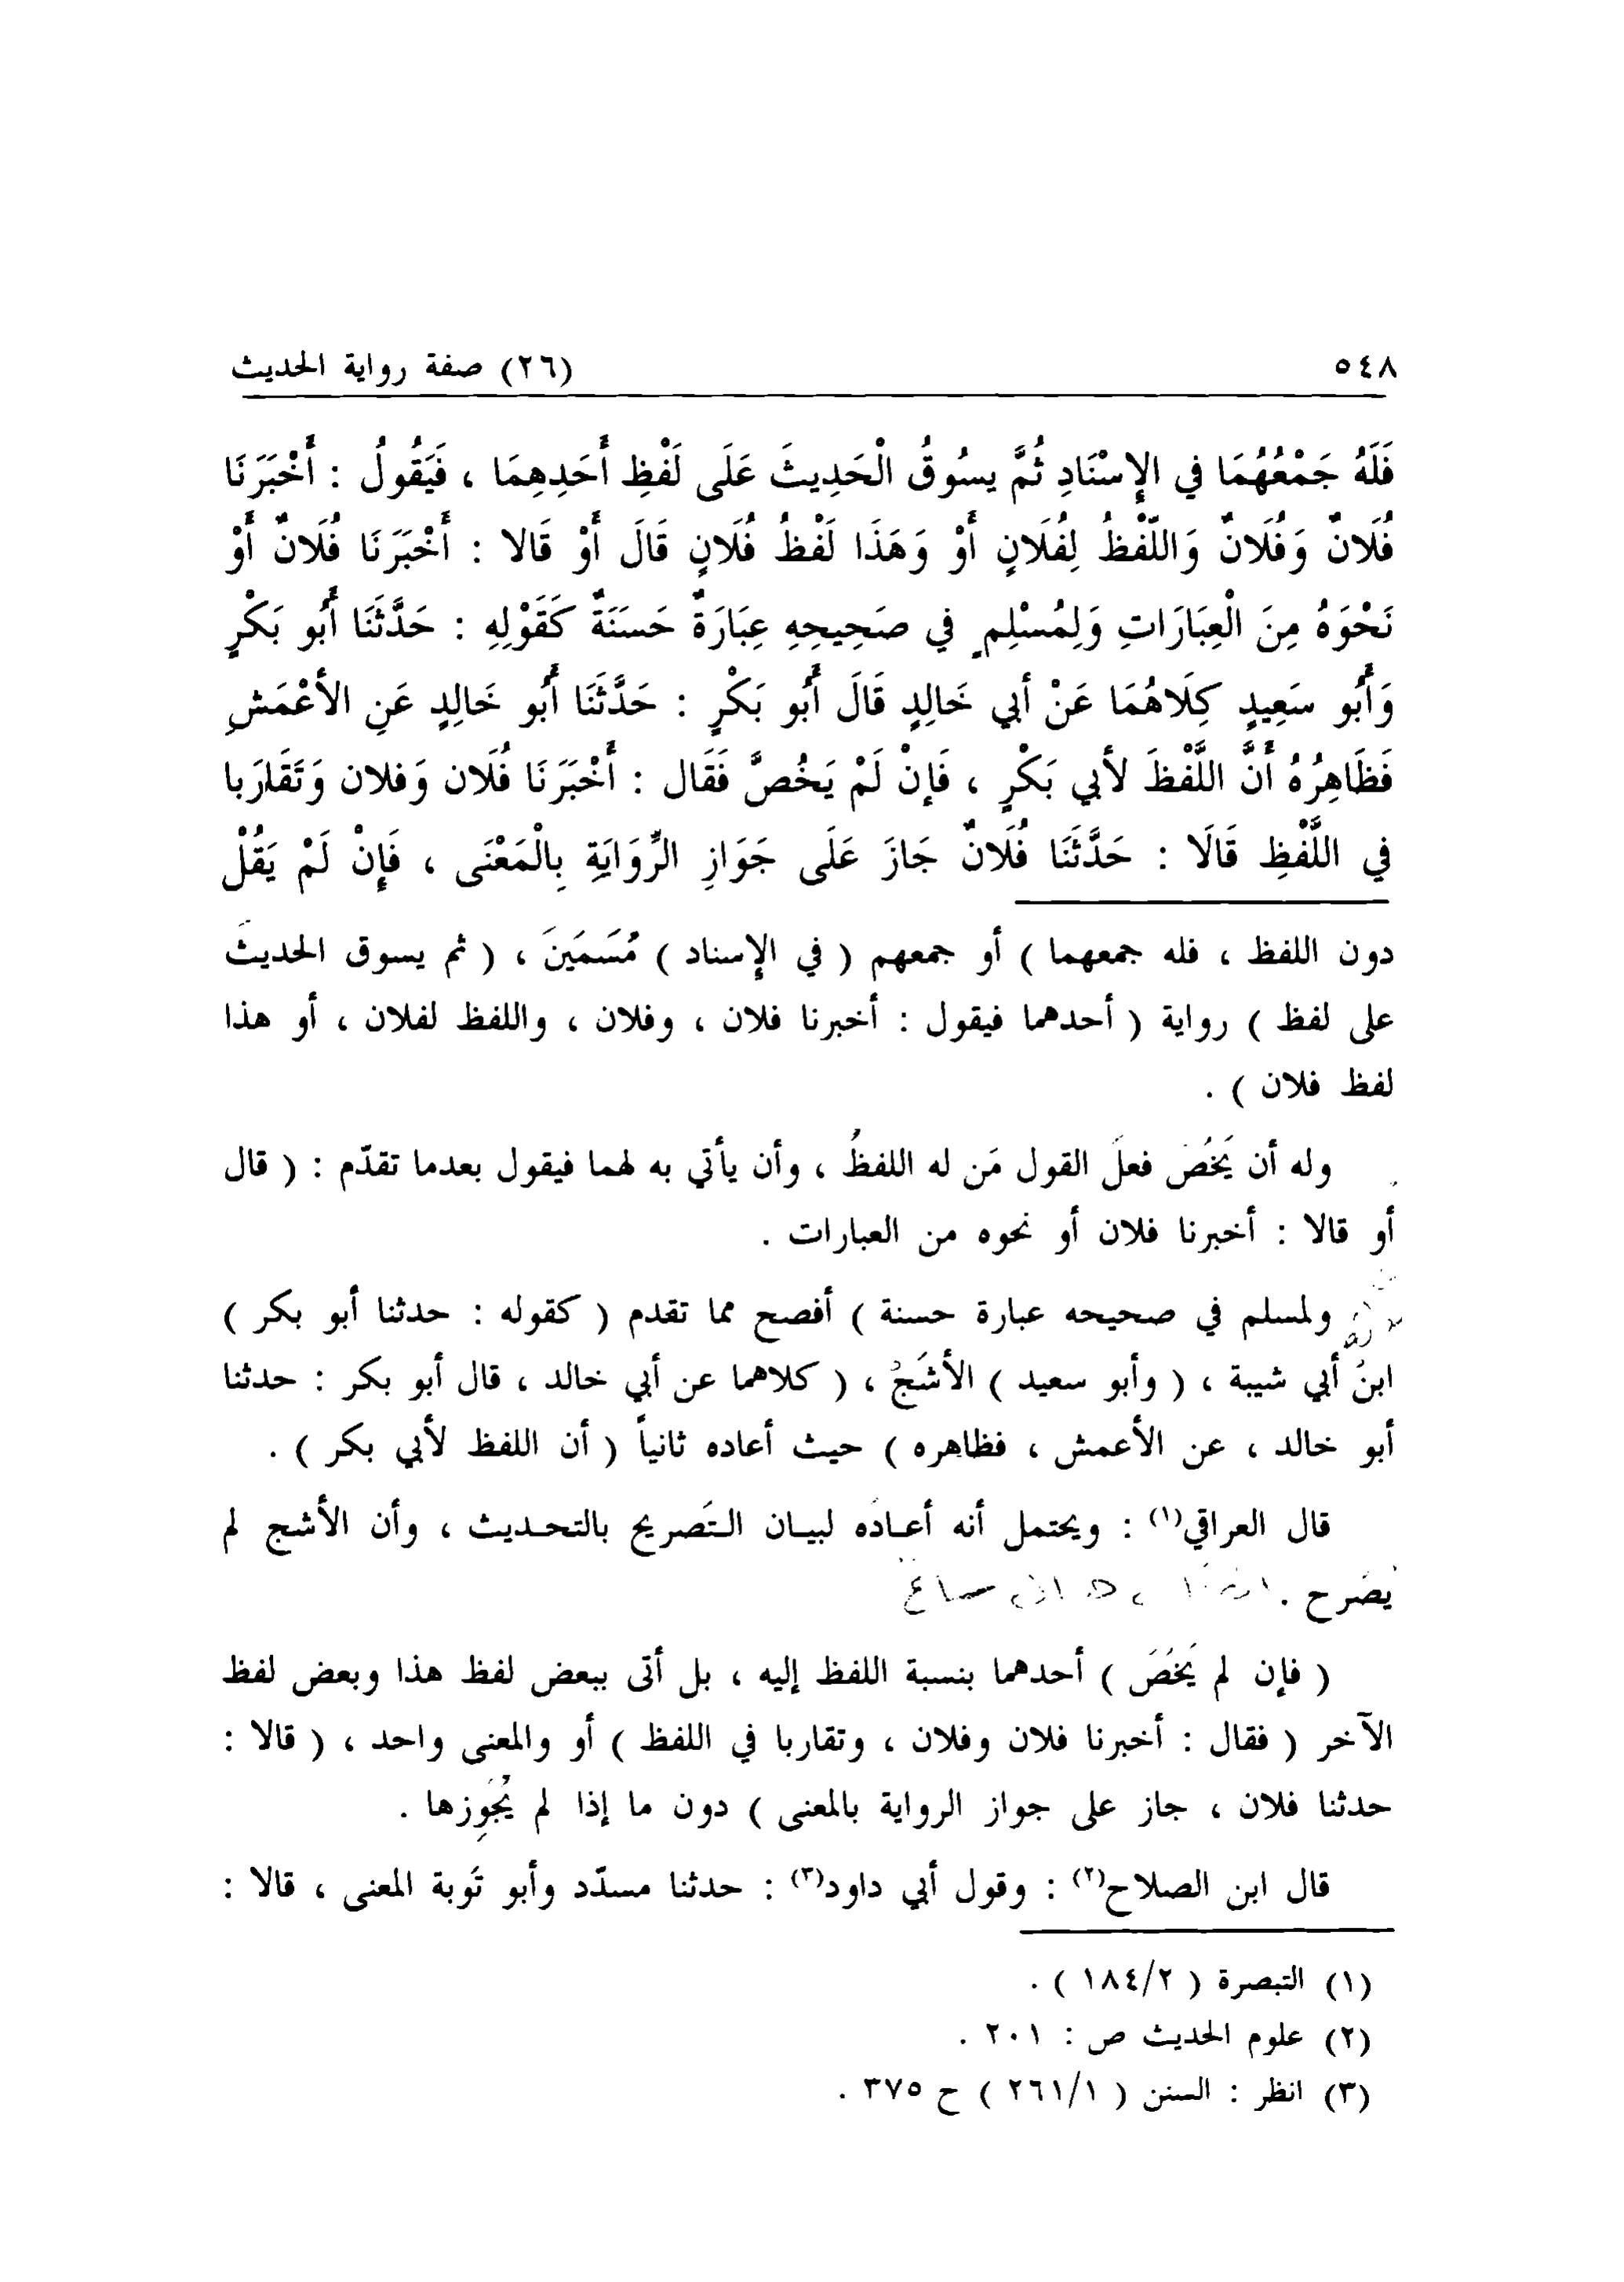 ٥٤٨ (٢٦) صفة رواية الحديث
فَلَهُ جَمْعُهُمَا في الإِسْنَادِ ثُمَّ يسُوقُ الْحَدِيثَ عَلَى لَفْظِ أَحَدِهِمَا ، فَيَقُولُ : أَخْبَرَنَا
فُلَانٌ وَفُلَانٌ وَاللّفْظُ لِفُلَانٍ أَوْ وَهَذَا لَفْظُ فُلَانٍ قَالَ أَوْ قَالا : أَخْبَرَنَا فُلَانٌ أَوْ
نَحْوَهُ مِنَ الْعِبَارَاتِ وَلِمُسْلِمٍ في صَحِيحِهِ عِبَارَةٌ حَسَنَةٌ كَقَوْلِهِ : حَدَّثَنَا أَبُو بَكْرٍ
وَأَبُو سَعِيدٍ كِلَاهُمَا عَنْ أبي خَالِدٍ قَالَ أَبُو بَكْرٍ : حَدَّثَنَا أَبُو خَالِدٍ عَنِ الأَعْمَشِ
فَظَاهِرُهُ أَنَّ اللَّفْظَ لأبي بَكْرٍ ، فَإِنْ لَمْ يَخُصَّ فَقَال : أَخْبَرَنَا فُلَان وَفلان وَتَقَارَبا
في اللَّفْظِ قَالَا : حَدَّثَنَا فُلَانٌ جَازَ عَلَى جَوَازِ الرِّوَايَةِ بِالْمَعْنَى ، فَإِنْ لَمْ يَقُلْ
دون اللفظ ، فله جمعهما ) أو جمعهم ( في الإسناد ) مُسَمَينَ ، ( ثم يسوق الحديث
على لفظ ) رواية ( أحدهما فيقول : أخبرنا فلان ، وفلان ، واللفظ لفلان ، أو هذا
لفظ فلان ) .
وله أن يَخُصَ فعلَ القول مَن له اللفظُ ، وأن يأتي به لهما فيقول بعدما تقدّم : ( قال
أو قالا : أخبرنا فلان أو نحوه من العبارات .
ولمسلم في صحيحه عبارة حسنة ) أفصح مما تقدم ( كقوله : حدثنا أبو بكر )
ابنُ أبي شيبة ، ( وأبو سعيد ) الأشَجُ ، ( كلاهما عن أبي خالد ، قال أبو بكر : حدثنا
أبو خالد ، عن الأعمش ، فظاهره ) حيث أعاده ثانياً ( أن اللفظ لأبي بكر ) .
قال العراقي(١) : ويحتمل أنه أعاده لبيان التَصريح بالتحديث ، وأن الأشج لم
يصَرح .
( فإن لم يَخُصَ ) أحدهما بنسبة اللفظ إليه ، بل أتى ببعض لفظ هذا وبعض لفظ
الآخر ( فقال : أخبرنا فلان وفلان ، وتقاربا في اللفظ ) أو والمعنى واحد ، ( قالا :
حدثنا فلان ، جاز على جواز الرواية بالمعنى ) دون ما إذا لم يُجَوِزها .
قال ابن الصلاح(٢) : وقول أبي داود(٣) : حدثنا مسدّد وأبو تَوبة المعنى ، قالا :
(١) التبصرة ( ١٨٤/٢ ) .
(٢) علوم الحديث ص : ٢٠١ .
(٣) انظر : السنن ( ٢٦١/١ ) ح ٣٧٥ .